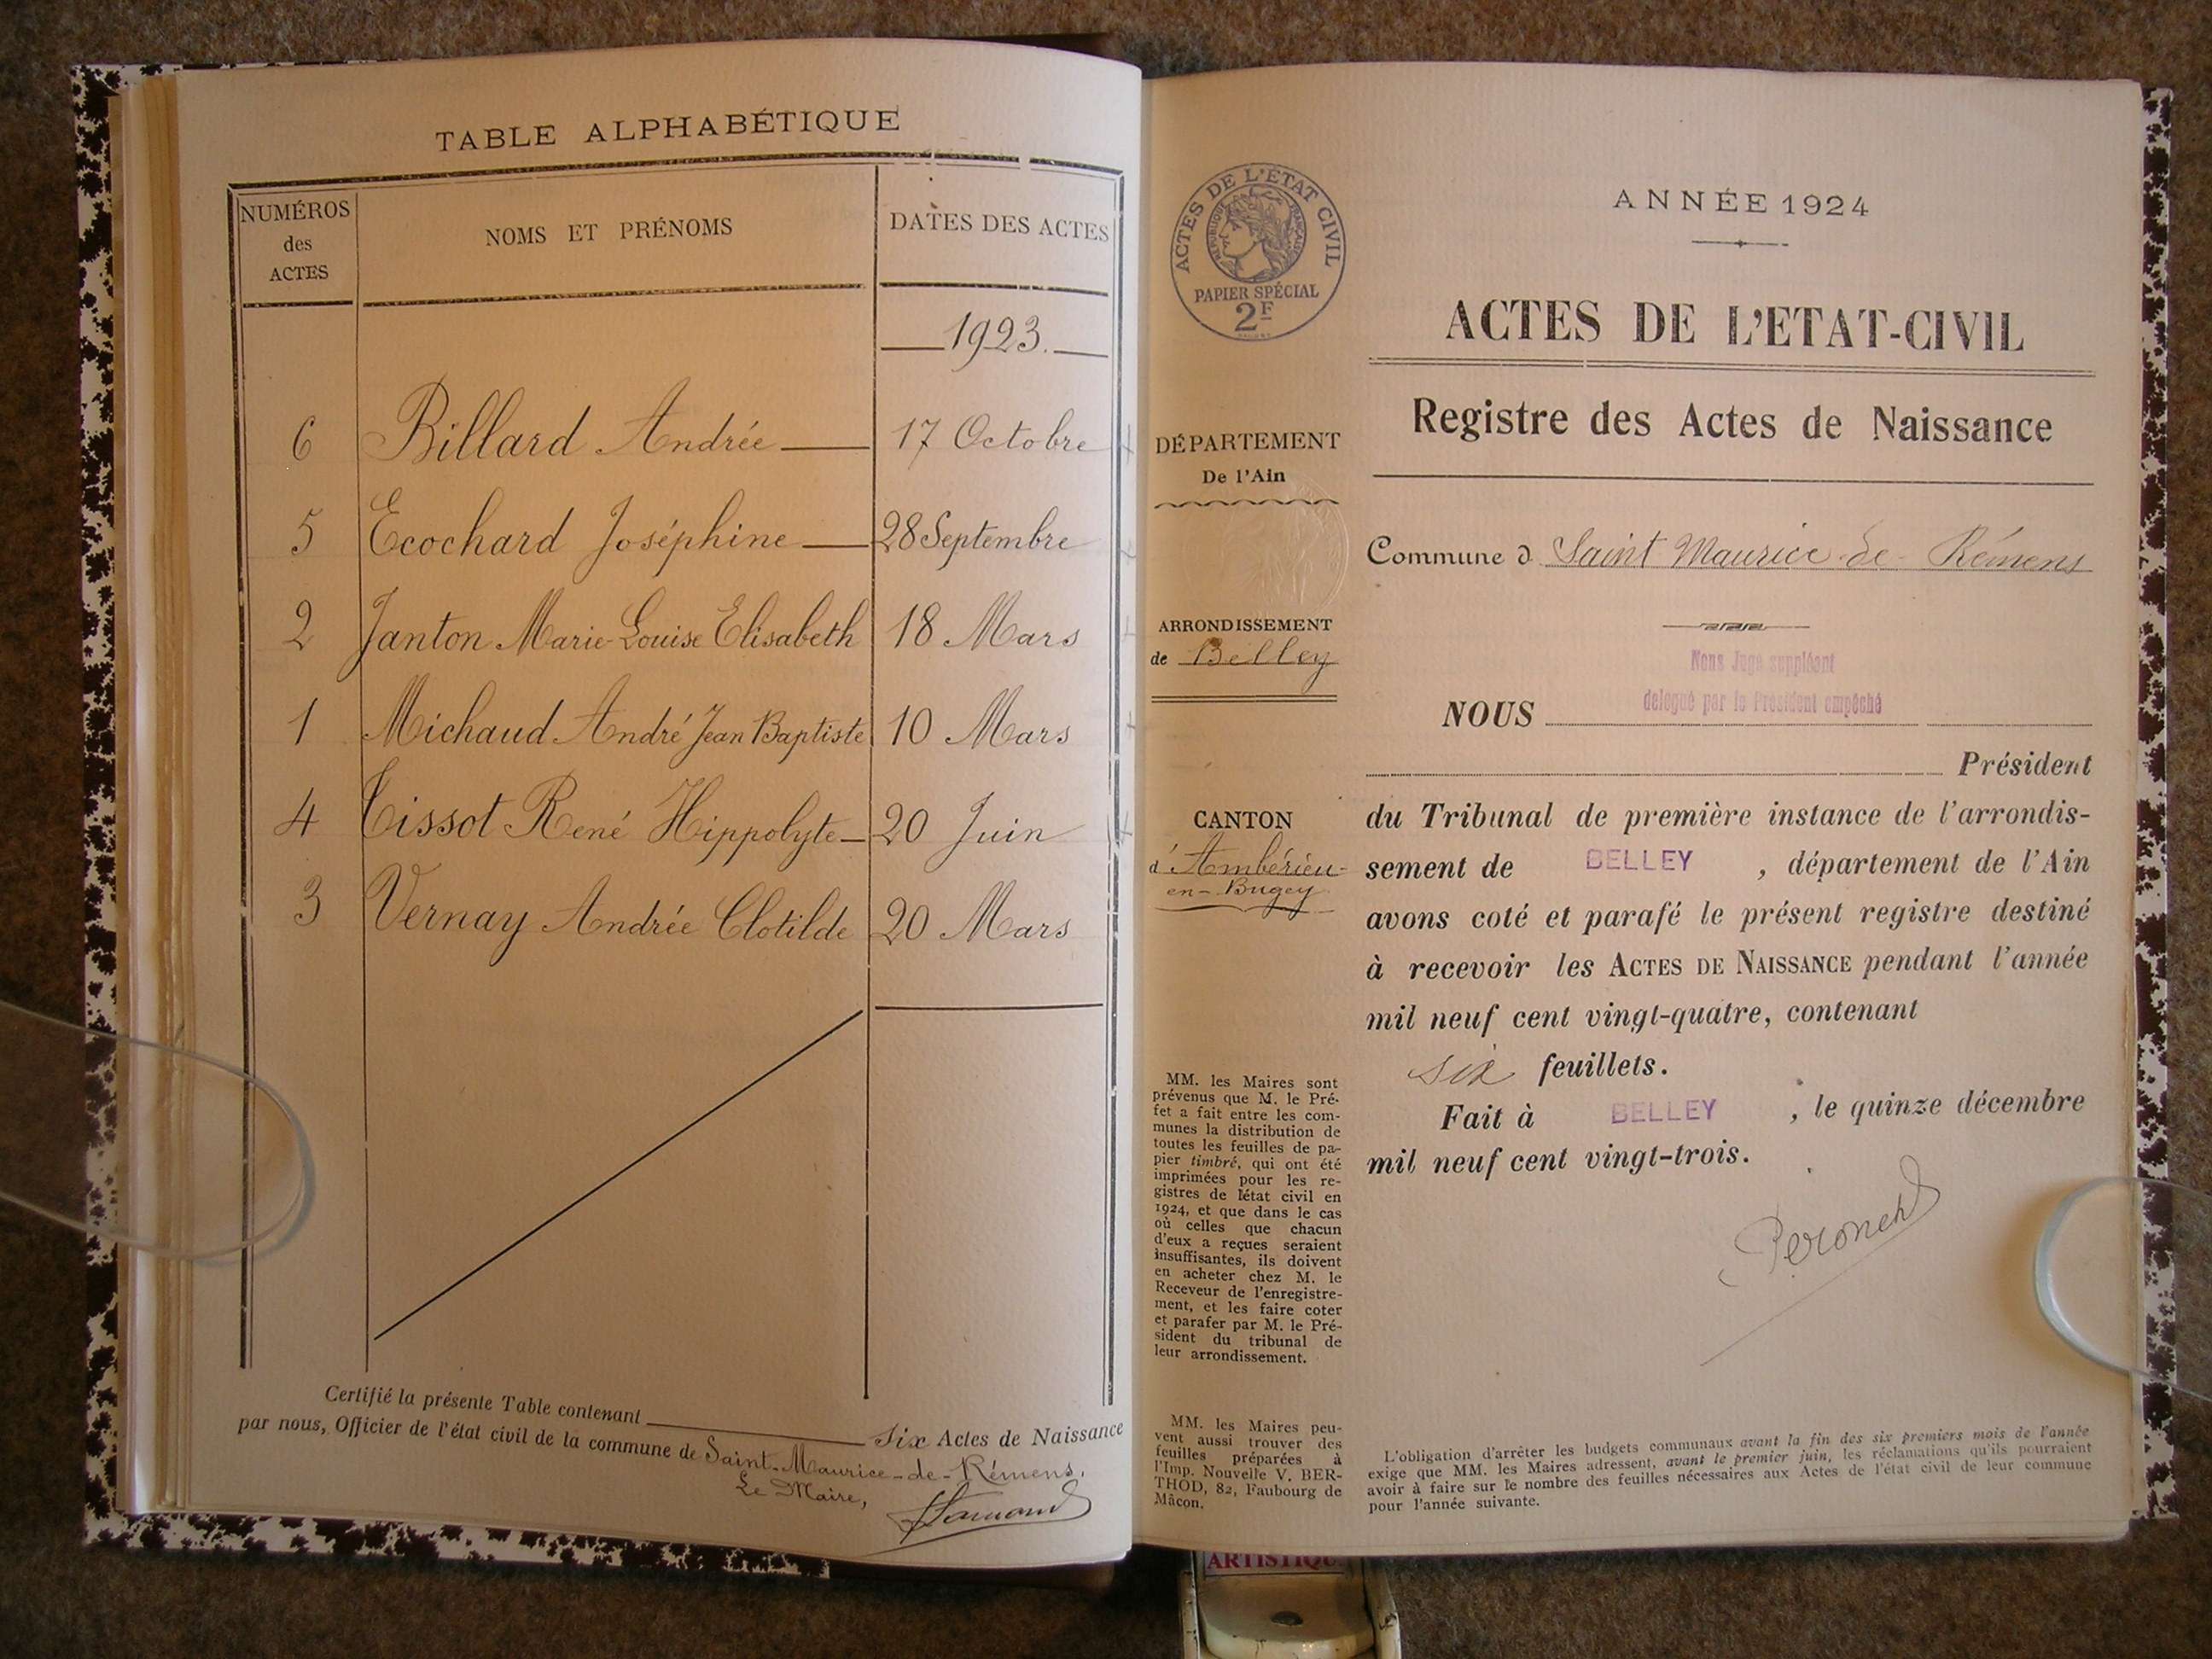 TABLE ALPHABÉTIQUE
NUMÉROS
des
ACTES
NOMS ET PRÉNOMS
DATES DES ACTES
1923.
6 Billard Andrée 17 Octobre
5 Ecochard Joséphine 28 Septembre
2 Janton Marie-Louise Elisabeth 18 Mars
1 Michaud André Jean Baptiste 10 Mars
4 Tissot René Hippolyte 20 Juin
3 Vernay Andrée Clotilde 20 Mars
Certifié la présente Table contenant six Actes de Naissance
par nous, Officier de l'état civil de la commune de Saint-Maurice-de-Rémens.
Le Maire,
ACTES DE L'ÉTAT CIVIL
RÉPUBLIQUE FRANÇAISE
PAPIER SPÉCIAL
2F
DÉPARTEMENT
De l'Ain
ARRONDISSEMENT
de Belley
CANTON
d'Ambérieu-
en-Bugey
MM. les Maires sont
prévenus que M. le Pré-
fet a fait entre les com-
munes la distribution de
toutes les feuilles de pa-
pier timbré, qui ont été
imprimées pour les re-
gistres de l'état civil en
1924, et que dans le cas
où celles que chacun
d'eux a reçues seraient
insuffisantes, ils doivent
en acheter chez M. le
Receveur de l'enregistre-
ment, et les faire coter
et parafer par M. le Pré-
sident du tribunal de
leur arrondissement.
MM. les Maires peu-
vent aussi trouver des
feuilles préparées à
l'Imp. Nouvelle V. BER-
THOD, 82, Faubourg de
Mâcon.
ANNÉE 1924
ACTES DE L'ETAT-CIVIL
Registre des Actes de Naissance
Commune d Saint Maurice-de-Rémens
Nous Juge suppléant
délégué par le Président empêché
NOUS
Président
du Tribunal de première instance de l'arrondis-
sement de BELLEY , département de l'Ain
avons coté et parafé le présent registre destiné
à recevoir les ACTES DE NAISSANCE pendant l'année
mil neuf cent vingt-quatre, contenant
six feuillets.
Fait à BELLEY , le quinze décembre
mil neuf cent vingt-trois.
L'obligation d'arrêter les budgets communaux avant la fin des six premiers mois de l'année
exige que MM. les Maires adressent, avant le premier juin, les réclamations qu'ils pourraient
avoir à faire sur le nombre des feuilles nécessaires aux Actes de l'état civil de leur commune
pour l'année suivante.